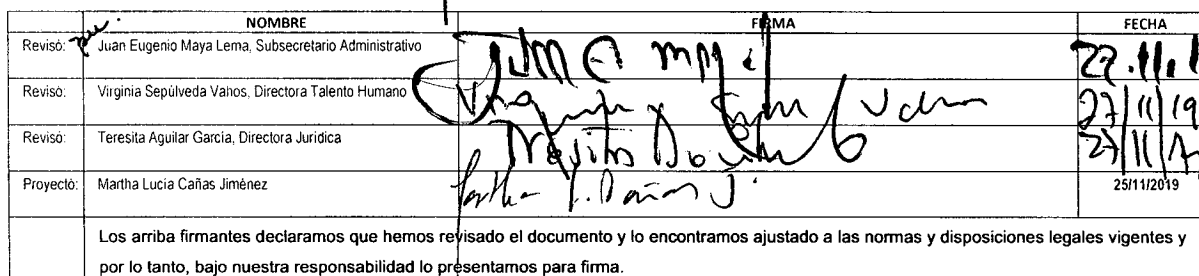 NOMBRE FIRMA FECHA
Revisó: Juan Eugenio Maya Lema, Subsecretario Administrativo
Revisó: Virginia Sepúlveda Vahos, Directora Talento Humano 27/11/19
Revisó: Teresita Aguilar García, Directora Jurídica 27/11/
Proyectó: Martha Lucía Cañas Jiménez 25/11/2019
Los arriba firmantes declaramos que hemos revisado el documento y lo encontramos ajustado a las normas y disposiciones legales vigentes y
por lo tanto, bajo nuestra responsabilidad lo presentamos para firma.